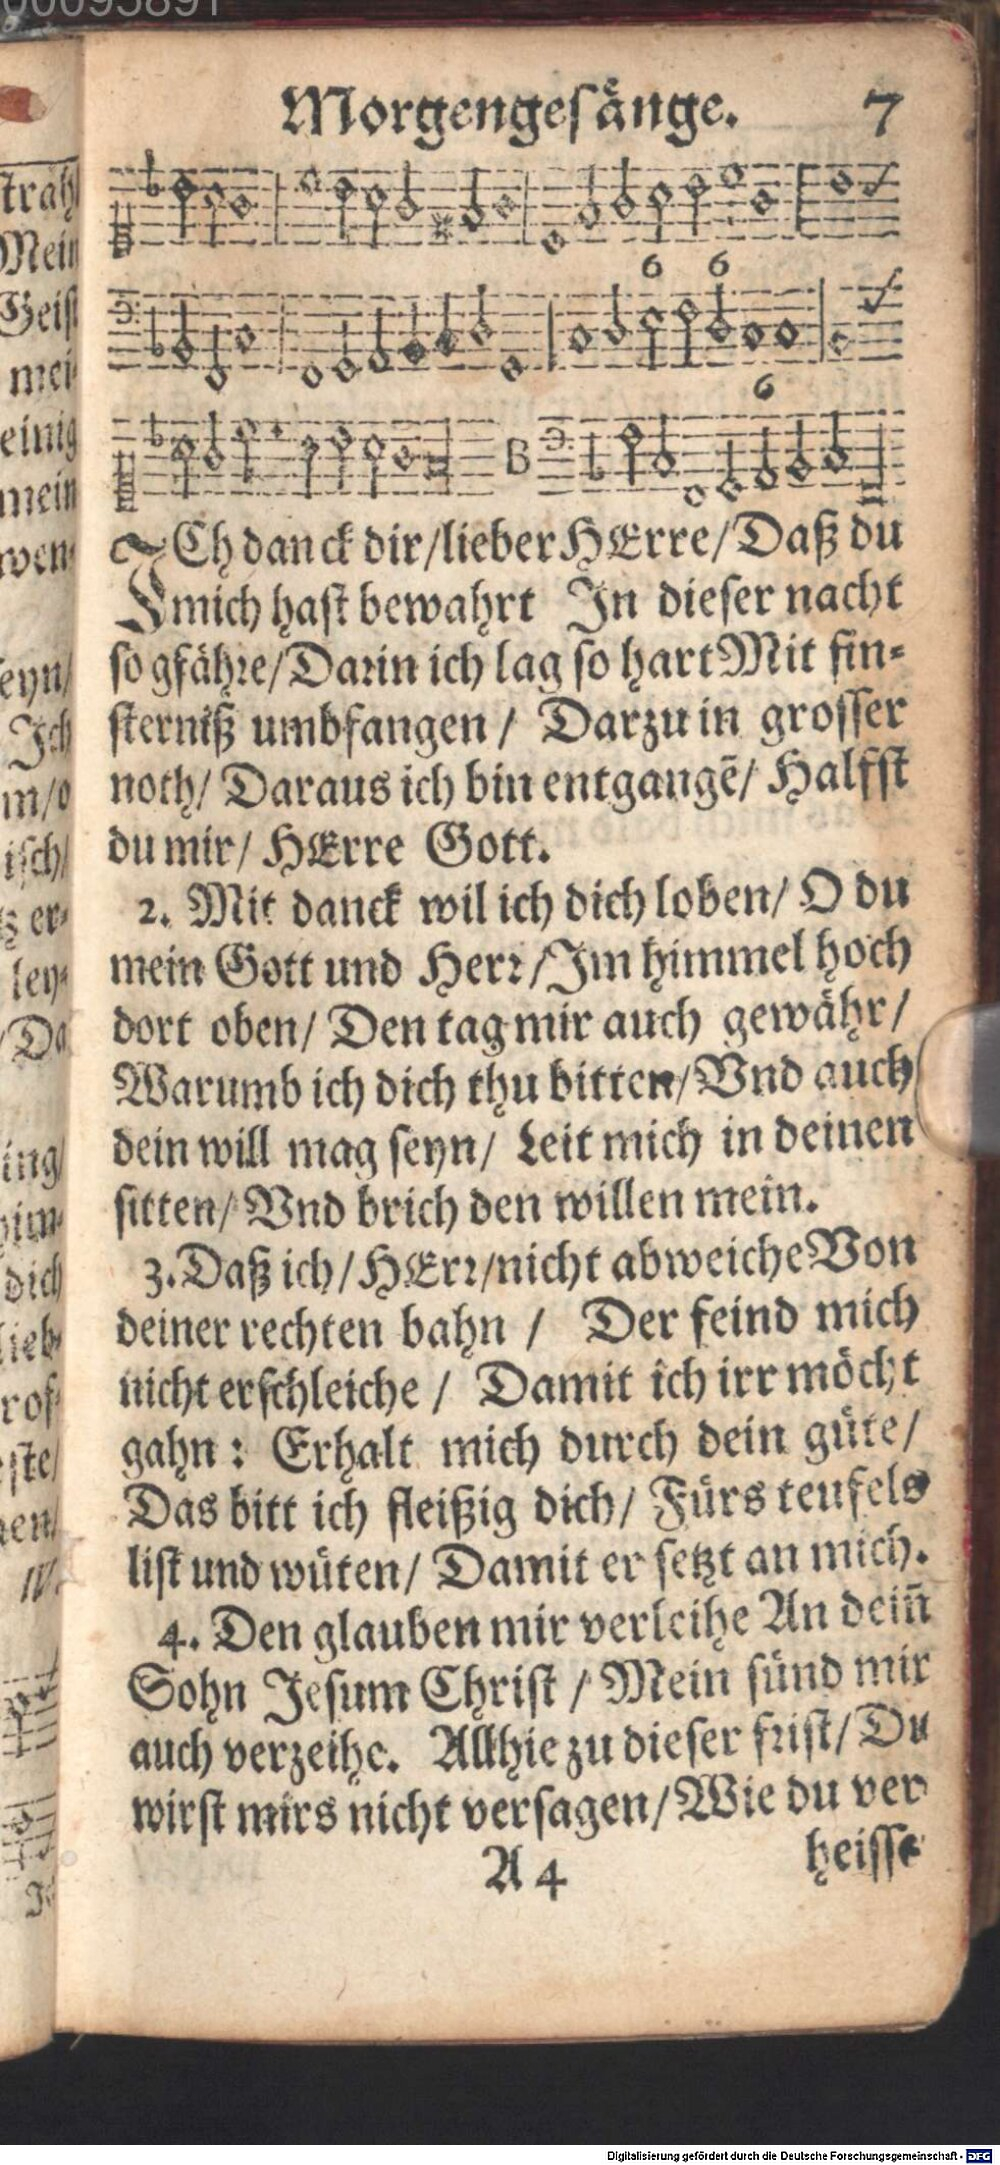 00095891
Morgengesänge. 7
6 6
6
B
ICh danck dir/lieber HErre/Daß du
mich hast bewahrt In dieser nacht
so gfähre/Darin ich lag so hart Mit fin-
sterniß umbfangen / Darzu in grosser
noth/ Daraus ich bin entgangē/ Halfst
du mir/ HErre Gott.
2. Mit danck wil ich dich loben/ O du
mein Gott und Herr/Im himmel hoch
dort oben/ Den tag mir auch gewähr/
Warumb ich dich thu bitten/Vnd auch
dein will mag seyn/ Leit mich in deinen
sitten/ Vnd brich den willen mein.
3. Daß ich/HErr/nicht abweiche Von
deiner rechten bahn / Der feind mich
nicht erschleiche / Damit ich irr möcht
gahn: Erhalt mich durch dein güte/
Das bitt ich fleißig dich/ Fürs teufels
list und wüten/ Damit er setzt an mich.
4. Den glauben mir verleihe An dein̄
Sohn Jesum Christ / Mein sünd mir
auch verzeihe. Allhie zu dieser frist/ Du
wirst mirs nicht versagen/Wie du ver
A 4 heisse
strah
Mein
Geist
mei-
einig
mein
wen-
seyn/
Ich
m/o
isch/
er-
ley-
/Da
ing/
him-
dich
lieb-
rof-
ste/
nen/
IV.
Digitalisierung gefördert durch die Deutsche Forschungsgemeinschaft - DFG